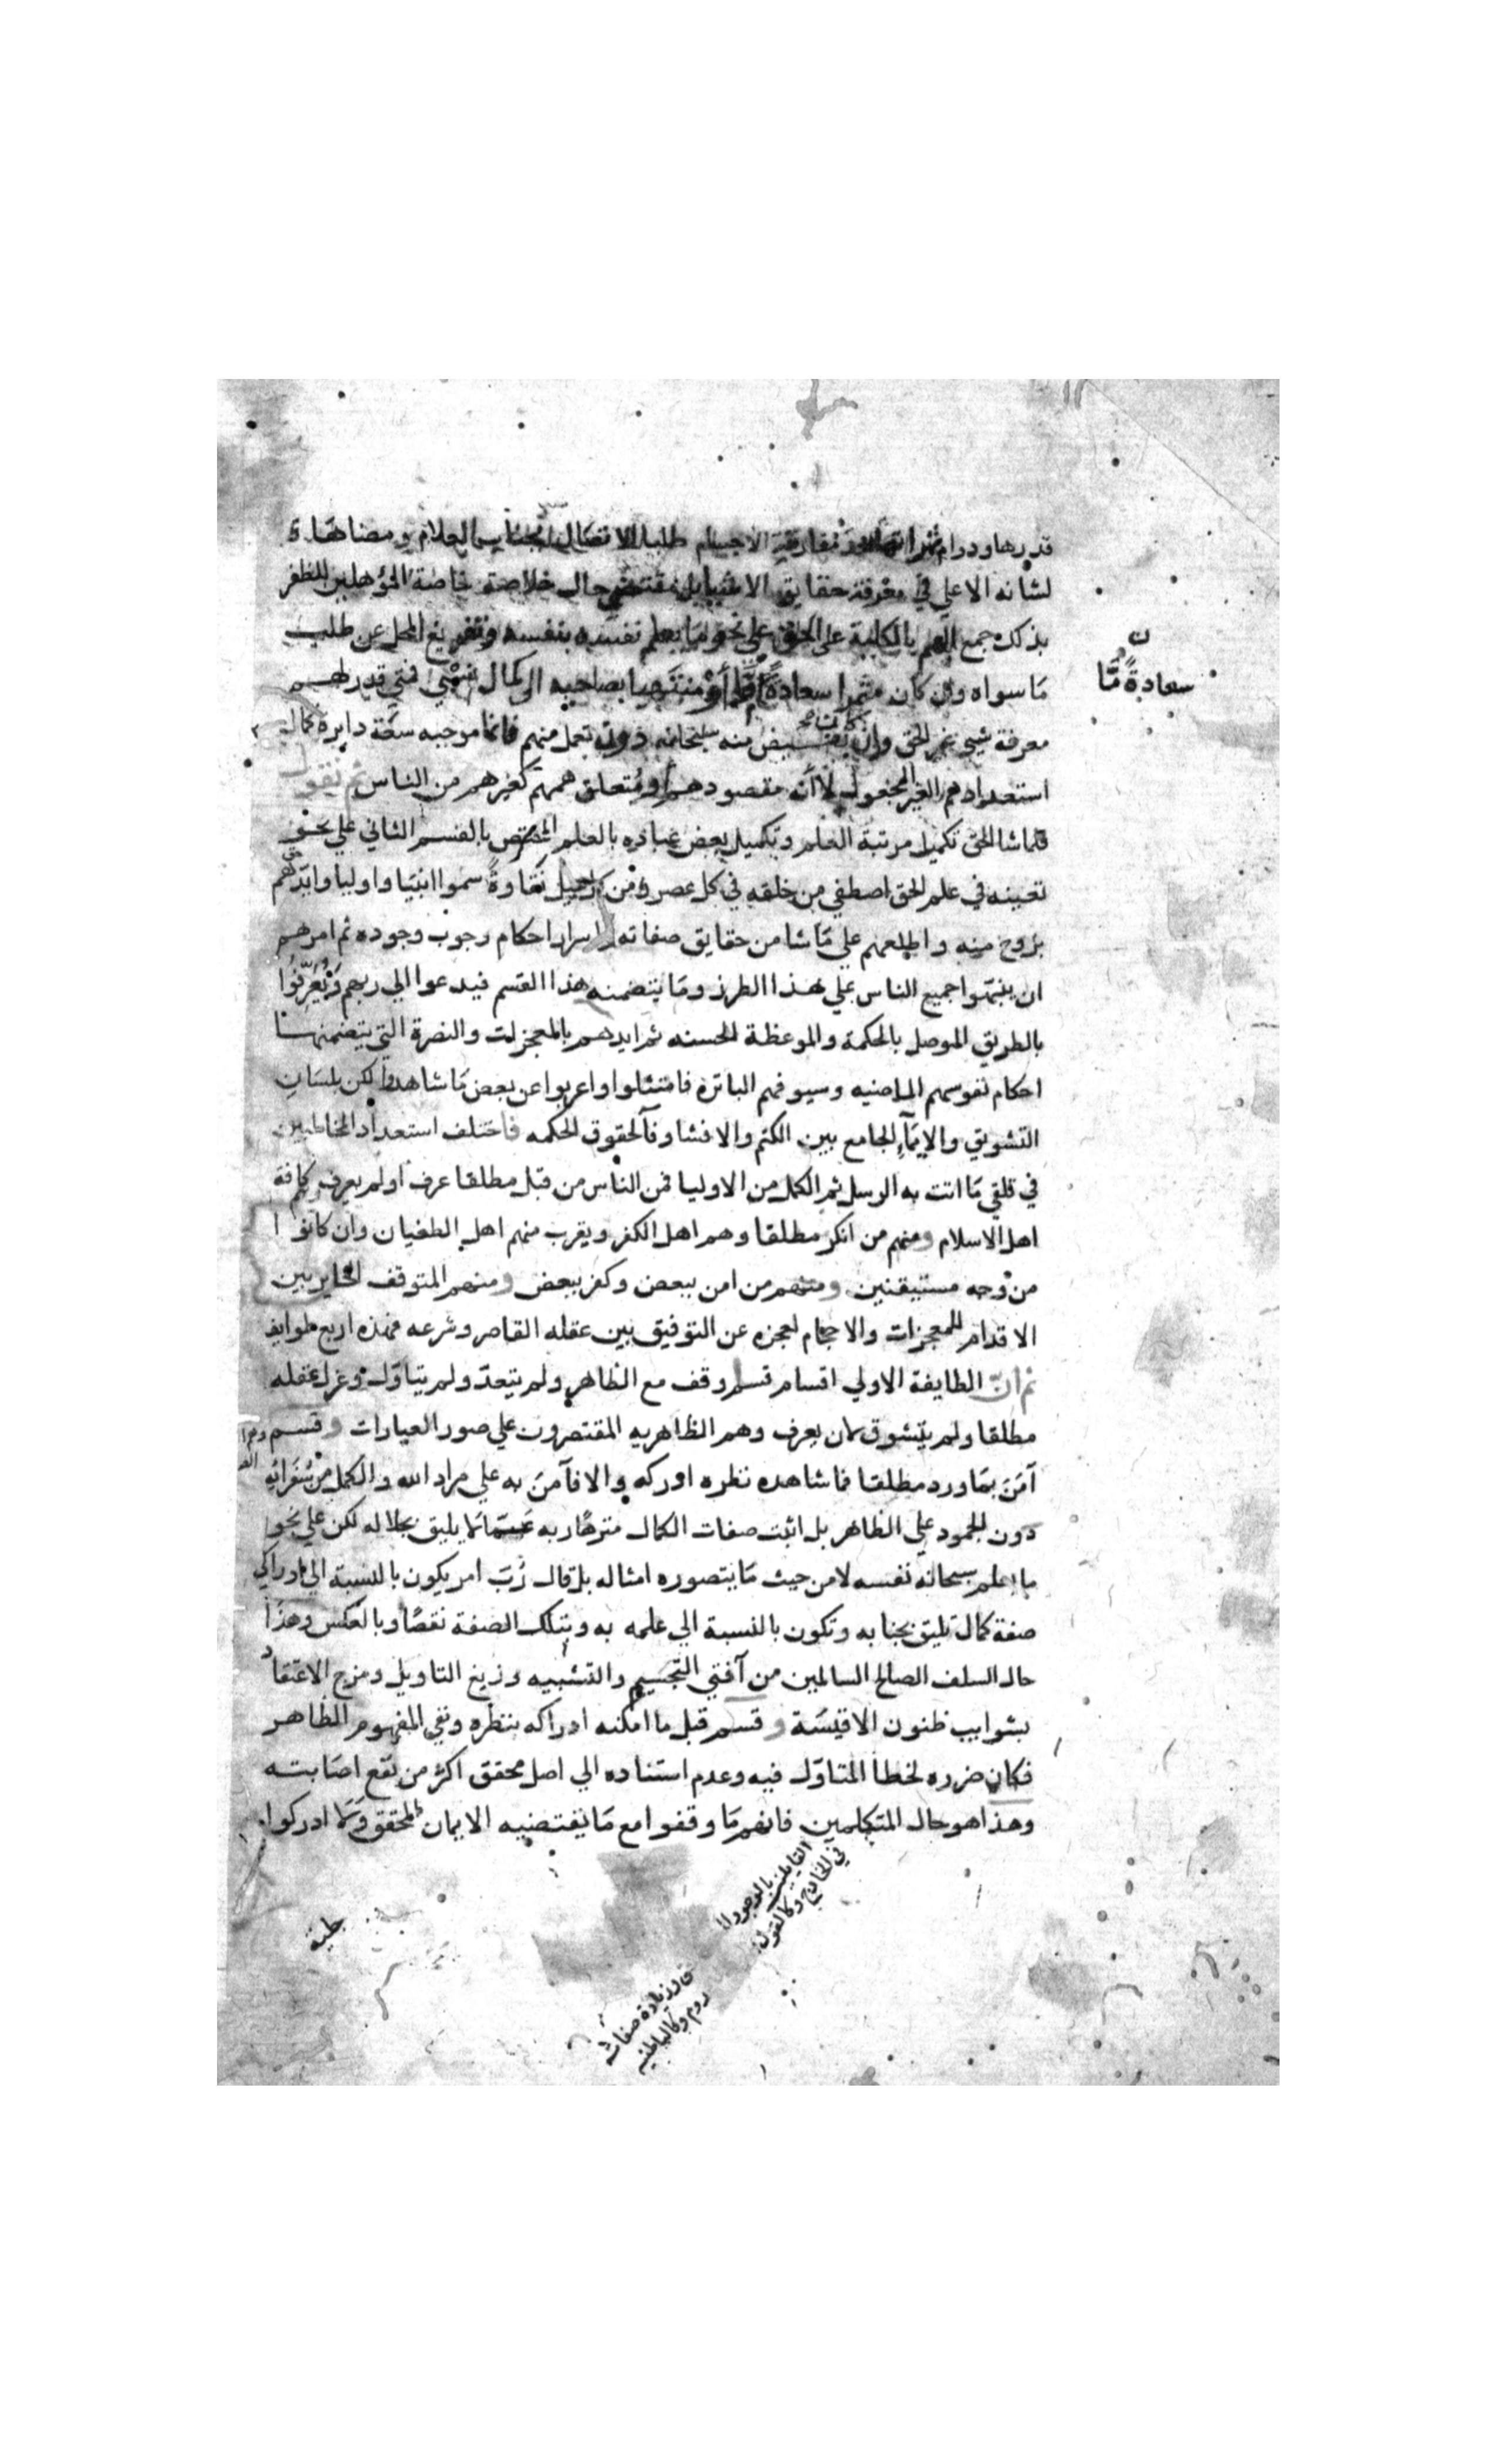 قدرها ودوام ثمراتها بعد مفارقة الاجسام طلبا للاتصال بجناب العلام ومضاهاة
لشانه الاعلي في معرفة حقايق الاشيا بل مقتضي حال خلاصة خاصة المؤهلين للظفر
بذلك جمع الهم بالكلية على الحق على نحو ما يعلم نفسه بنفسه وتفريغ المحل عن طلب
مَا سواه وان كان مثمرا سعادة مّا أوْ منتهيا بصاحبه الى كمال نسْبي فمتي قدر لهم
معرفة شي غير الحق وان كانت منه سبحانه دون تعمل منهم فانما موجبه سعَة دايرة كمال
استعدادهم الغير المجعول لا أنه مقصودهم او مُتعلق هممهم كغيرهم من الناس ثم نقول
فلما شا الحق تكميل مرتبة العلم وتكميل بعض عباده بالعلم المختص بالقسم الثاني علي نحو
تعينه في علم الحق اصطفي من خلقه في كل عصر ومن كل جيل نقاوةً سموا انبيَا واوليا وايّدهم
بروح منه واطلعهم علي مَا شا من حقايق صفاته واسرار احكام وجوب وجوده ثم امرهم
ان ينبّهوا جميع الناس علي هذا الطرز ومَا يتضمنه هذا القسم فيدعوا الي ربهم وَيُعَرّفوُا
بالطريق الموصل بالحكمة والموعظة الحسنه ثم ايدهم بالمعجزات والنصرة التي يتضمنها
احكام نفوسهم الماضيه وسيوفهم الباترة فامتثلوا واعربوا عن بعض مَا شاهدوا لكن بلسَانِ
التشويق والايمَآءِ الجامع بين الكتم والافشا وفآ لحقوق الحكمه فاختلف استعداد المخاطبين
في تلقي مَا اتت به الرسل ثم الكمل من الاوليا فمن الناس من قبل مطلقا عرف أو لم يعرف وهم كافة
اهل الاسلام ومنهم من انكر مطلقا وهم اهل الكفر ويقرب منهم اهل الطغيان وان كانوا
من وجه مستيقنين ومنهم من امن ببعض وكفر ببعض ومنهم المتوقف الحاير بين
الاقدام للمعجزات والاحجام لعجزه عن التوفيق بين عقله القاصر وشرعه فهذه اربع طوايف
ثم انّ الطايفة الاولي اقسام قسم وقف مع الظاهر ولم يتعدّ ولم يتاوّل وعزل عقله
مطلقا ولم يتشوق لان يعرف وهم الظاهريه المقتصرون علي صور العبارات وقسم
آمَنَ بمَا ورد مطلقا فما شاهده نظره ادركه والا فآمنَ به علي مراد الله والكمل من سُفَرائهِ
دون الجمود علي الظاهر بل اثبت صفات الكمال منزهًا ربه عمّا لا يليق بجلاله لكن علي نحو
ما يعلم سبحانه نفسه لا من حيث مَا يتصوره امثاله بل قال رُبَ امر يكون بالنسبة الي ادراكي
صفة كمال تليق بجنابه وتكون بالنسبة الي علمه به وبتلك الصفة نقصًا وبالعكس وهذا
حال السلف الصالح السالمين من آفتي التجسيم والتشبيه وزيغ التاويل ومزج الاعتقاد
بشوايب ظنون الاقيسَة وقسم قبل ما امكنه ادراكه بنظره ونفي المفهوم الظاهر
فكان ضرره لخطا المتاوّل فيه وعدم استناده الي اصل محقق اكثر من نفع اصَابته
وهذا هو حال المتكلمين فانهم مَا وقفوا مع مَا يقتضيه الايمان المحقق وَلَا ادركوا
ن
سعادةً مَّا
القايلين بالوجود
في الخارج وكالقول
وزيادة صفات
وكالباطنيه